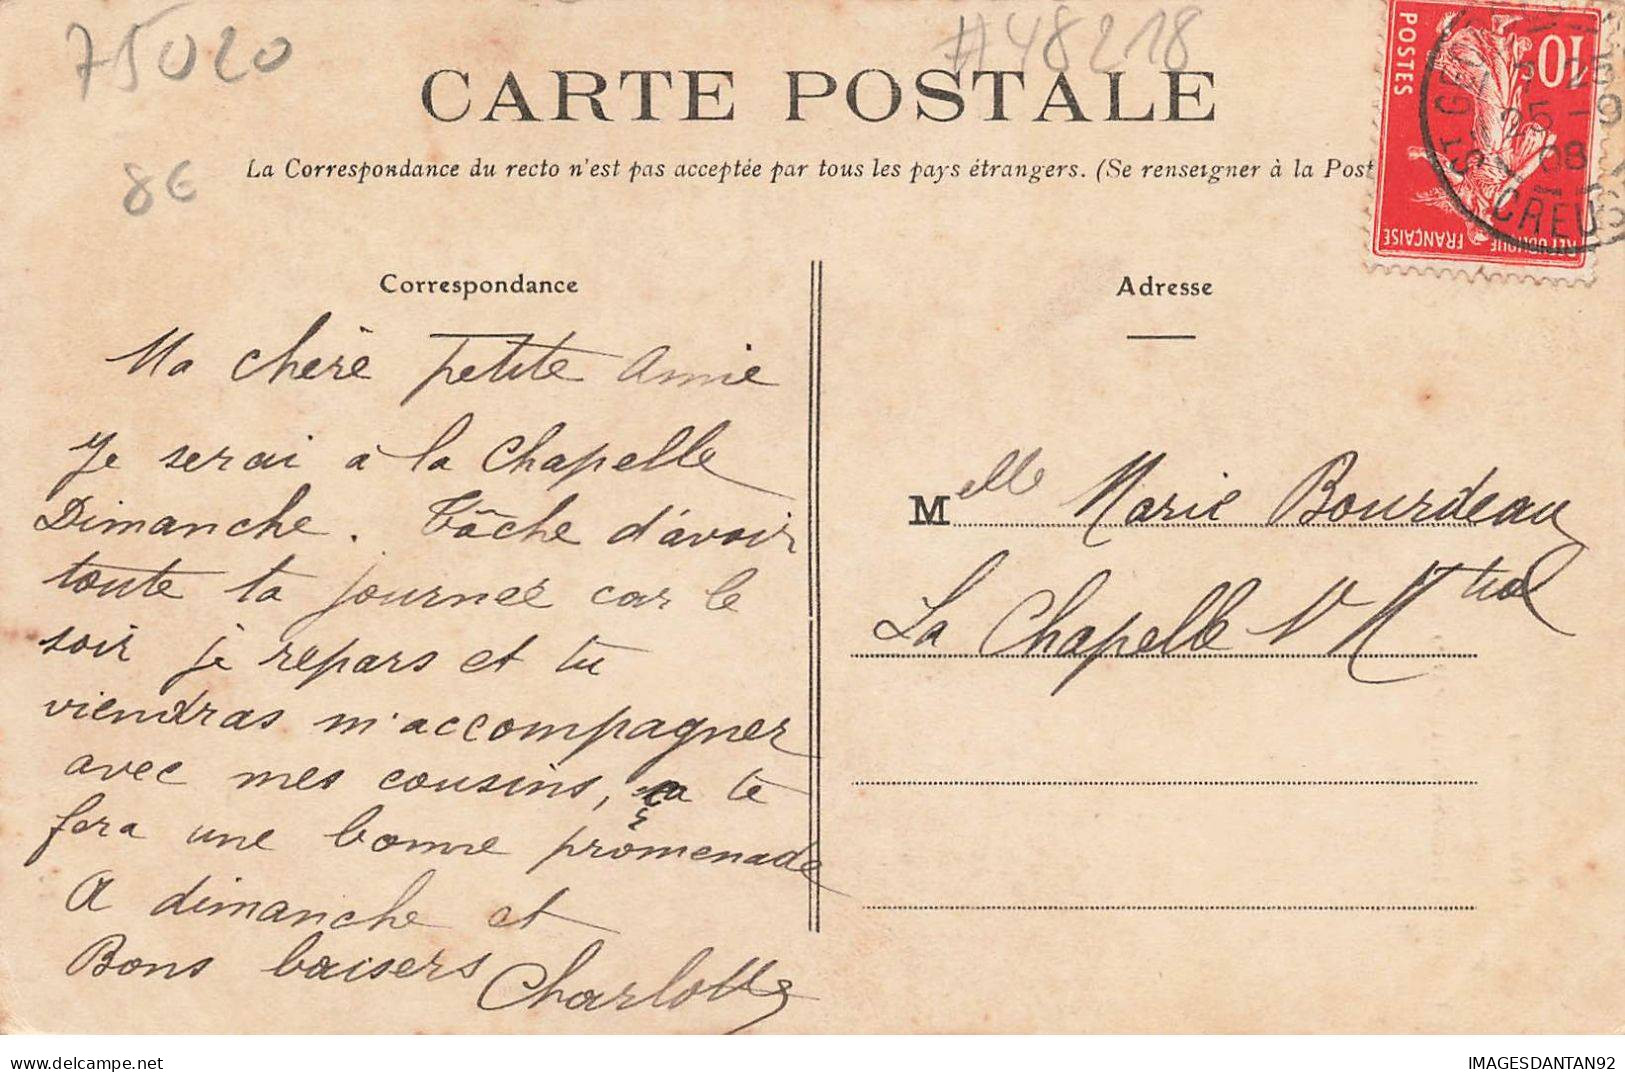 75020
#48218
CARTE POSTALE
8€
La Correspondance du recto n'est pas acceptée par tous les pays étrangers. (Se renseigner à la Post
10
POSTES
RÉPUBLIQUE FRANÇAISE
ST GEO
25 -9
08
CREUS
Correspondance
Ma chère petite amie
Je serai à la Chapelle
Dimanche. Tâche d'avoir
toute ta journée car le
soir je repars et tu
viendras m'accompagner
avec mes cousins, ça te
fera une bonne promenade
A dimanche et
Bons baisers Charlotte
Adresse
Melle Marie Bourdeau
La Chapelle
IMAGESDANTAN92